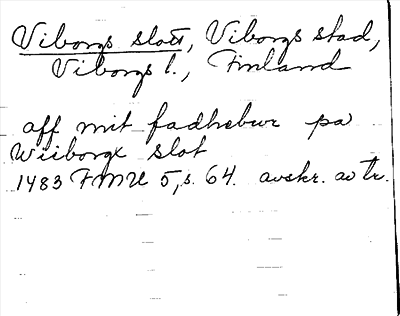 Viborgs slott, Viborgs stad,
Viborgs l., Finland
aff mit fadhebwr pa
Wiiborgx slot
1483 FMU 5, s. 64. avskr. av tr.